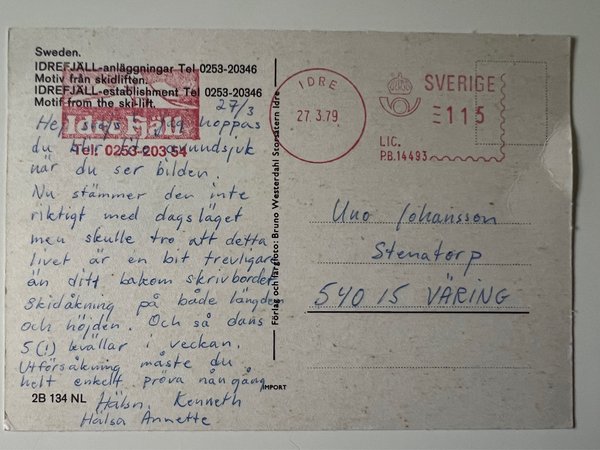 Sweden.
IDREFJÄLL-anläggningar Tel 0253-20346
Motiv från skidliften.
IDREFJÄLL-establishment Tel 0253-20346
Motif from the ski-lift.
27/3
Idre Fjäll
Tel: 0253-203 54
Hej hoppas
du blir avundsjuk
när du ser bilden.
Nu stämmer den inte
riktigt med dagsläget
men skulle tro att detta
livet är en bit trevligare
än ditt bakom skrivbordet
Skidåkning på både längden
och höjden. Och så dans
5(!) kvällar i veckan.
Utförsåkning måste du
helt enkelt pröva nån gång
Hälsn. Kenneth
Hälsa Annette
2B 134 NL
IMPORT
Förlag och färgfoto: Bruno Westerdahl Storsätern Idre
IDRE
27.3.79
SVERIGE
115
LIC.
P.B.14493
Uno Johansson
Stenatorp
540 15 VÄRING